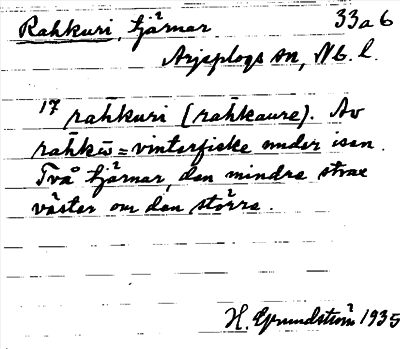 Rahkuri, tjärnar 33a6
Arjeplogs sn, Nb. l.
17 rāhkuri (rahkaure). Av
rāhkē = vinterfiske under isen.
Två tjärnar, den mindre strax
väster om den större.
H. Grundström 1935